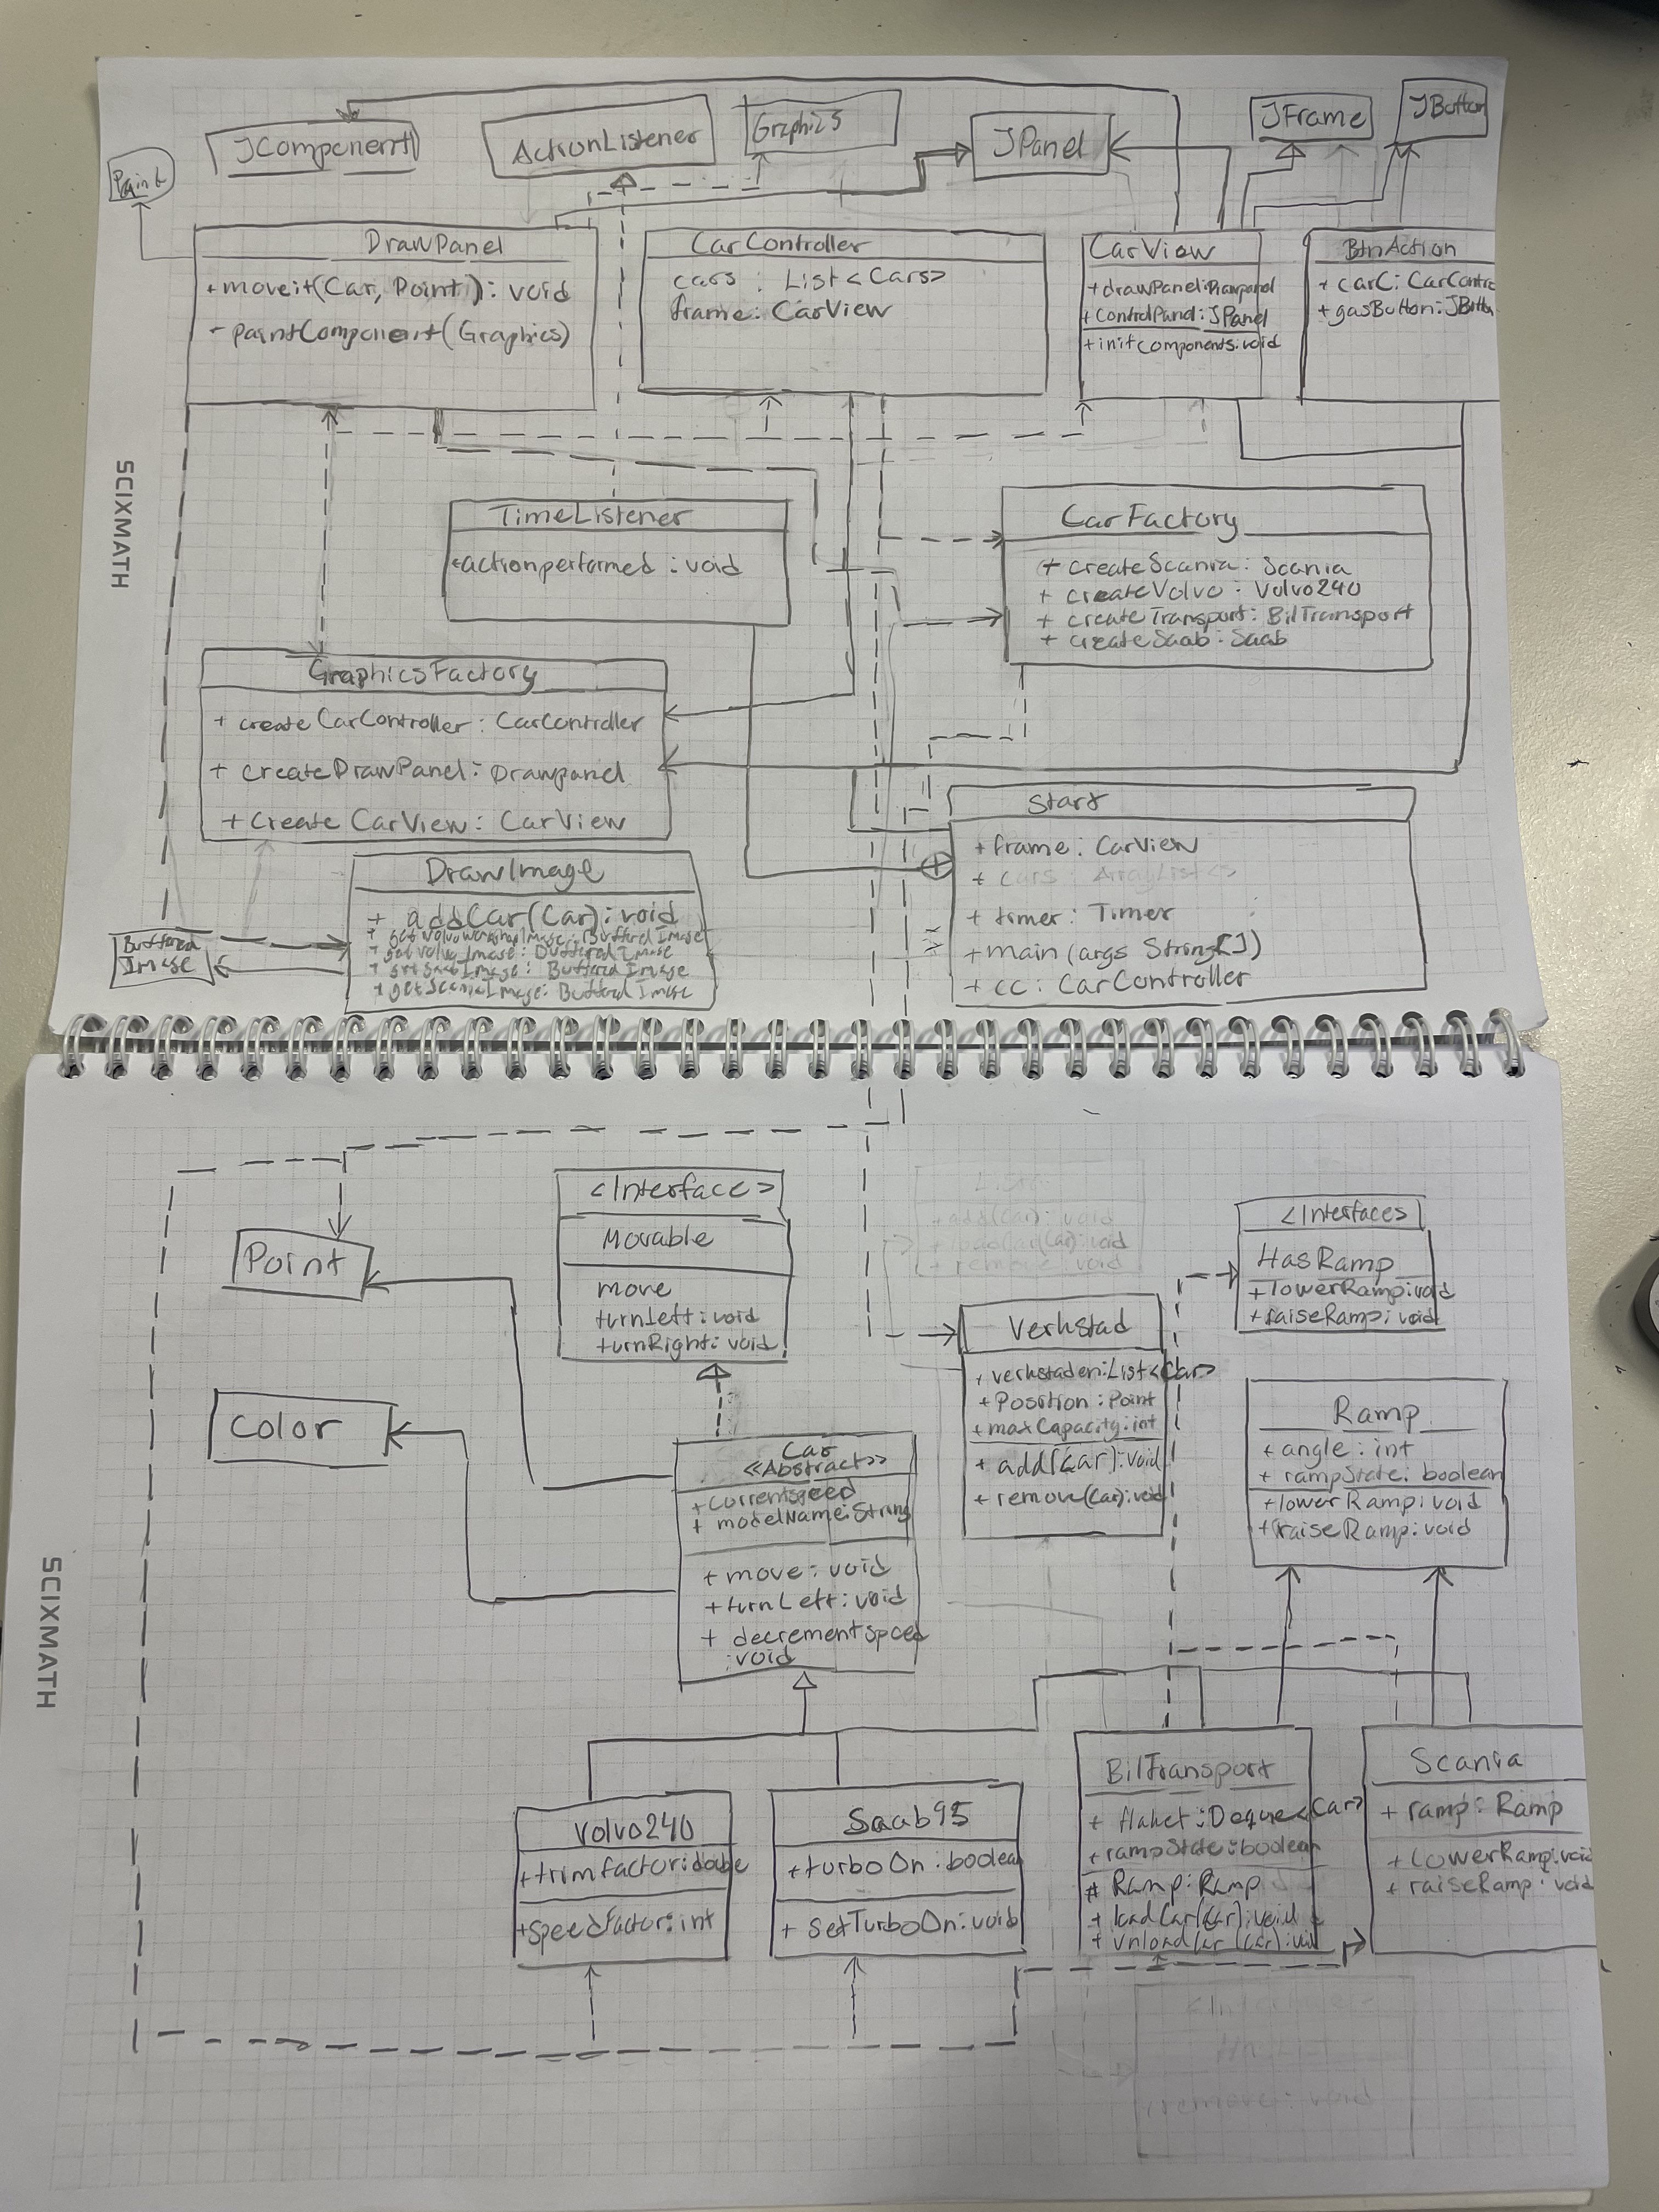 JComponent
ActionListener
Graphics
JPanel
JFrame
JButton
Paint
DrawPanel
+moveit(Car, Point): void
- paintComponent(Graphics)
CarController
cars : List<Cars>
frame: CarView
CarView
+drawPanel:Drawpanel
+controlPanel: JPanel
+initcomponents:void
BtnAction
+ carC: CarContro
+ gasButton: JButton
SCIXMATH
TimeListener
+actionperformed : void
CarFactory
+ createScania: Scania
+ createVolvo : Volvo240
+ createTransport: BilTransport
+ createSaab: Saab
GraphicsFactory
+ createCarController: CarController
+ createDrawPanel: Drawpanel
+ Create CarView: CarView
Start
+ frame: CarView
+ cars : ArrayList<>
+ timer: Timer
+main (args String[])
+ cc: CarController
DrawImage
+ addCar(Car): void
+ getVolvoWorkshopImage: Buffered Image
+ getVolvoImage: Buffered Image
+ getSaabImage: Buffered Image
+ getScaniaImage: Buffered Image
Buffered
Image
<Interface>
Movable
move
+urnleft: void
+urnRight: void
List
+add(Car): void
+ loadCar(Car): void
+ remove : void
<Interfaces>
HasRamp
+lowerRamp:void
+raiseRamp: void
Point
Verkstad
+ verkstaden:List<Car>
+Position: Point
+maxCapacity: int
+ add(Car):void
+ remove(Car):void
Ramp
+ angle: int
+ rampState: boolean
+lowerRamp: void
+raiseRamp:void
Color
Car
<<Abstract>>
+currentspeed
+ modelName:String
+ move: void
+turnLeft: void
+ decrementspeed
:void
SCIXMATH
Volvo240
+trimfactor:double
+speedFactor:int
Saab95
+turboOn: boolean
+ setTurboOn: void
BilTransport
+ flaket :Deque<Car>
+rampState:boolean
# Ramp:Ramp
+ loadCar(Car):void
+ unloadCar (Car):void
Scania
+ ramp: Ramp
+lowerRamp:void
+ raiseRamp: void
remove: void